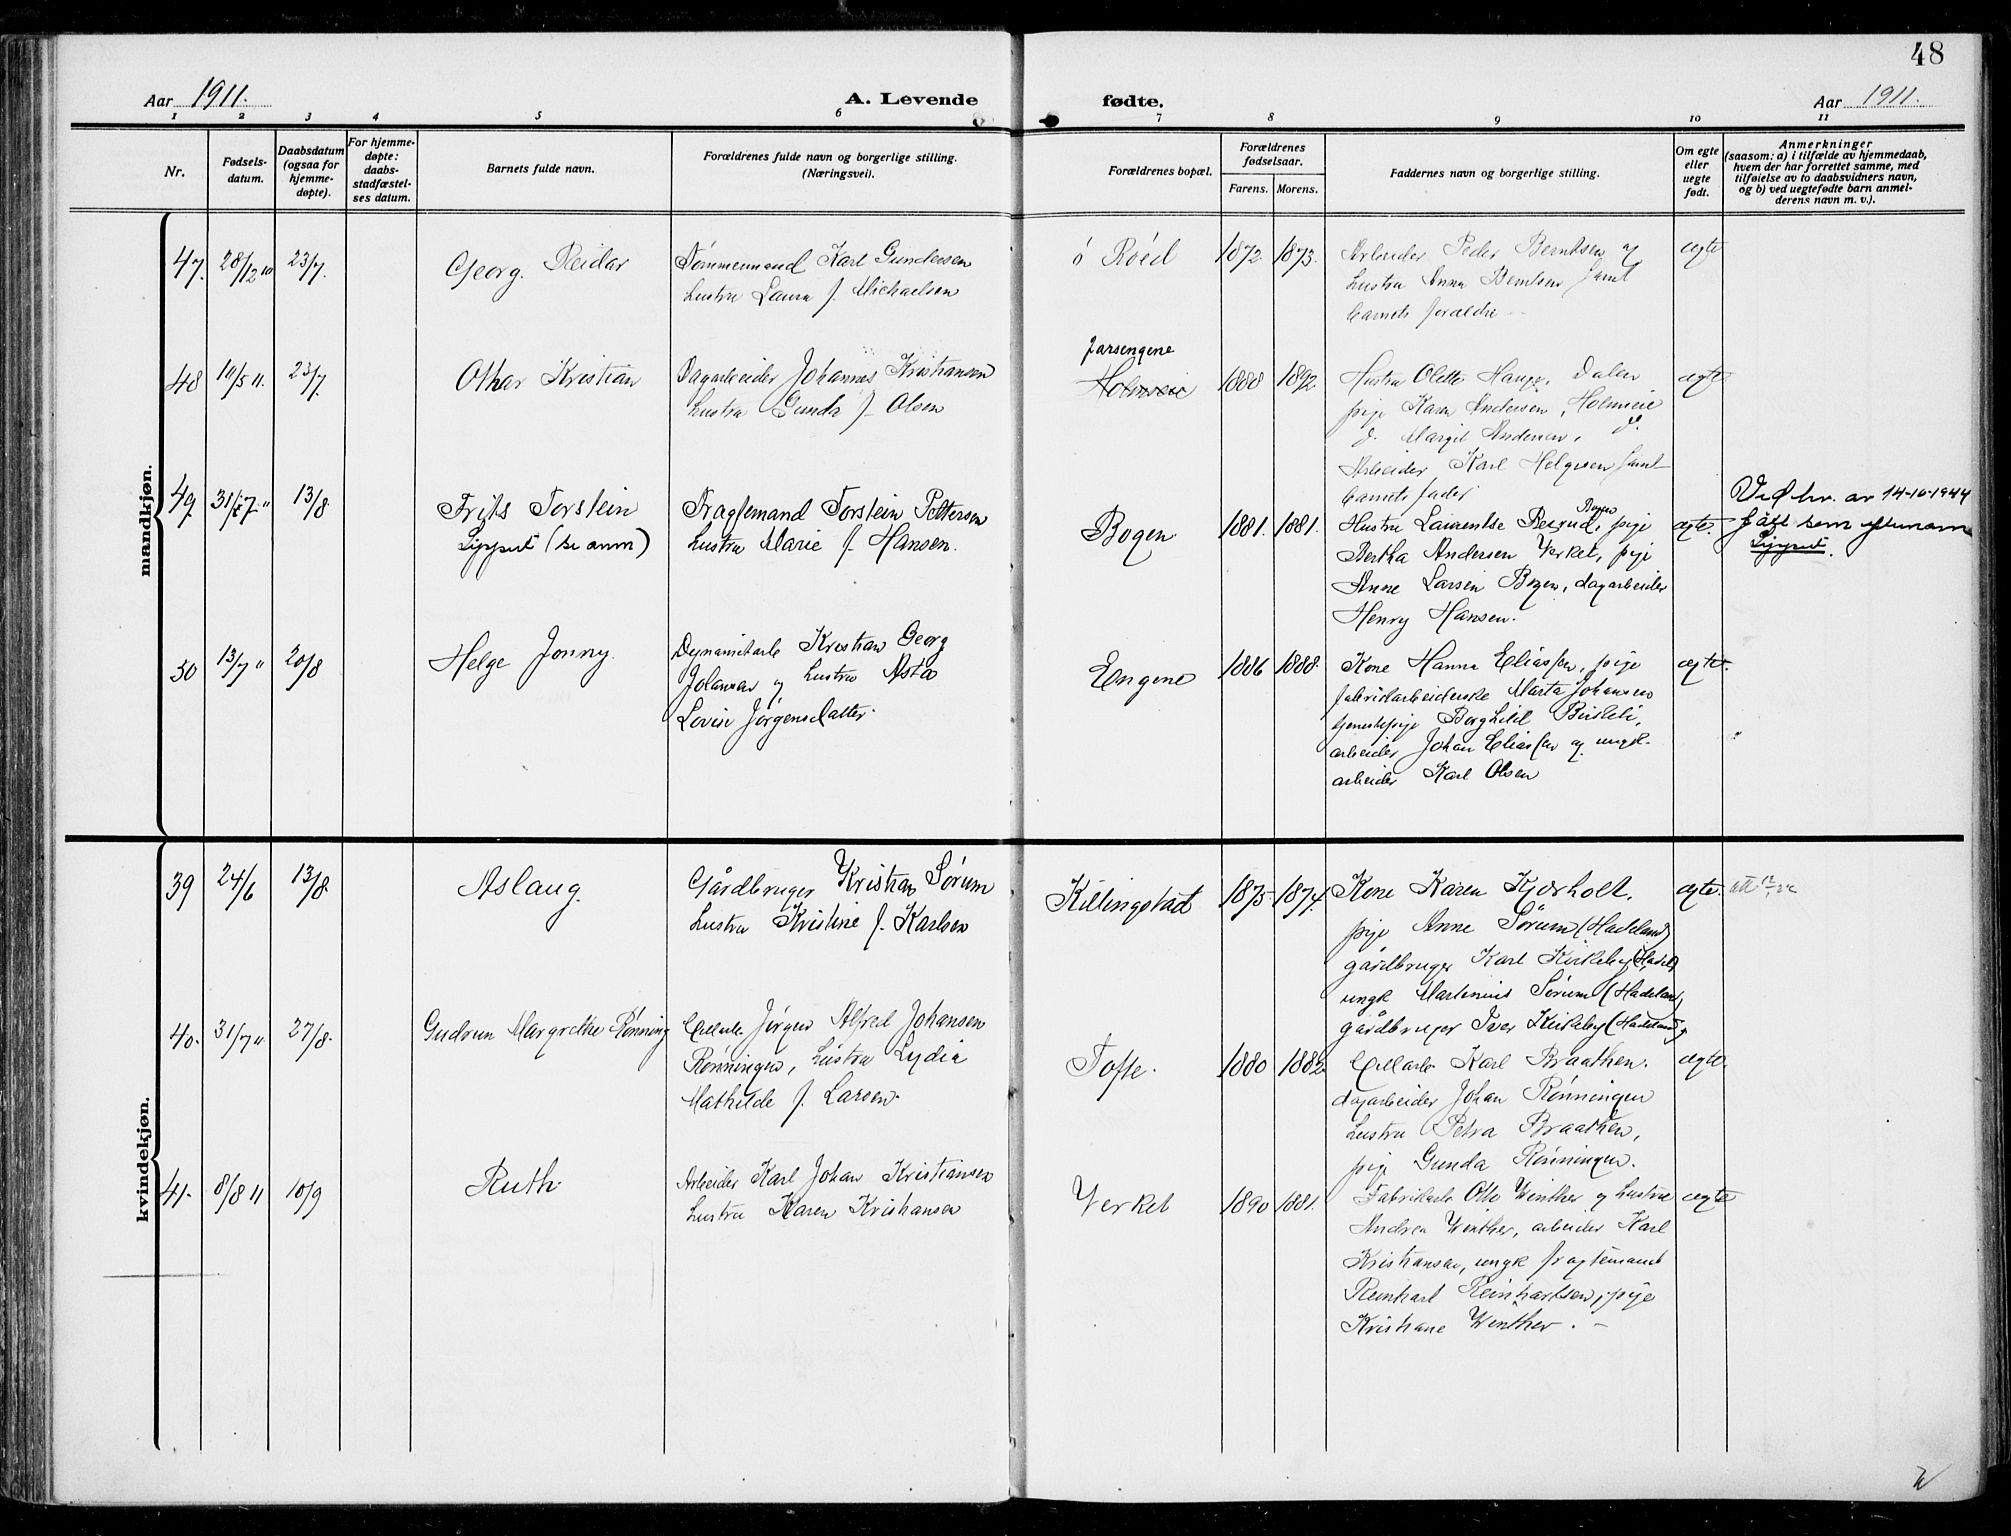 48
Aar 1911.
A. Levende fødte.
Aar 1911.
1 2 3 4 5 6 7 8 9 10 11
Nr.
Fødsels-
datum.
Daabsdatum
(ogsaa for
hjemme-
døpte).
For hjemme-
døpte:
daabs-
stadfæstel-
ses datum.
Barnets fulde navn.
Forældrenes fulde navn og borgerlige stilling.
(Næringsvei).
Forældrenes bopæl.
Forældrenes
fødselsaar.
Farens. Morens.
Faddernes navn og borgerlige stilling.
Om egte
eller
uegte
født.
Anmerkninger
(saasom: a) i tilfælde av hjemmedaab,
hvem der har forrettet samme, med
tilføielse av to daabsvidners navn,
og b) ved uegtefødte barn anmel-
derens navn m. v.).
mandkjøn.
47. 28/12 10 23/7.
Georg Reidar
Tømmermand Karl Gundersen
hustru Laura f. Michaelsen
ö Röed
1872. 1873.
Arbeider Peder Berntsen og
hustru Anna Berntsen samt
barnets forældre
egte
48 10/5 11. 23/7.
Othar Kristian
Dagarbeider Johannes Kristiansen
hustru Gunda f. Olsen
Holmseie
1888 1892
Hustru Olette Hauge, Dalen
pige Karen Andersen, Holmeie
d. Margit Andersen, d.
Arbeider Karl Helgesen samt
barnets fader
egte
49 31/7 " 13/8
Frits Torstein
Lippert (se anm)
Fragtemand Torstein Pettersen
hustru Marie f. Hansen.
Bogen
1881. 1881.
Hustru Laurentse Berud, pige
Bertha Andersen Verket, pige
Anne Larsen Bogen, dagarbeider
Henry Hansen.
egte.
Ved kr. av 14-10-1944
fått som etternavn
Lippert.
50 13/7 " 20/8
Helge Jonny.
Dynamitarb Kristian Georg
Johansen og hustru Asta
Lovise Jørgensdatter.
Engene
1886 1888.
Kone Hanna Eliassen, pige
fabrikarbeiderske Marta Johansen
tjenestepige Borghild Birkeli,
arbeider Johan Eliassen og ungk.
arbeider Karl Olsen
egte.
kvindekjøn.
39 24/6 13/8.
Aslaug.
Gårdbruger Kristian Sørum
hustru Kristine f. Karlsen
Killingstad
1875 1874.
Kone Karen Kjærholt.
pige Anne Sørum (Hadeland)
gårdbruger Karl Kirkeby (Hadel)
ungk Martinius Sørum (Hadeland)
gårdbruger Iver Kirkeby (Hadeland)
egte.
40. 31/7 " 27/8.
Gudrun Margrethe Rønning
Cellarb Jørgen Alfred Johansen
Rønningen, hustru Lydia
Mathilde f. Larsen.
Tofte.
1880 1882.
Cellarb Karl Braathen.
dagarbeider Johan Rønningen
hustru Petra Braathen,
pige Gunda Rønningen.
egte.
41. 8/8 11 10/9
Ruth.
Arbeider Karl Johan Kristiansen
hustru Karen Kristiansen
Verket
1890 1881.
Fabrikarb Otto Winther og hustru
Andrea Winther, arbeider Karl
Kristiansen, ungk fragtemand
Reinhart Reinhartsen, pige
Kristiane Winther.
egte